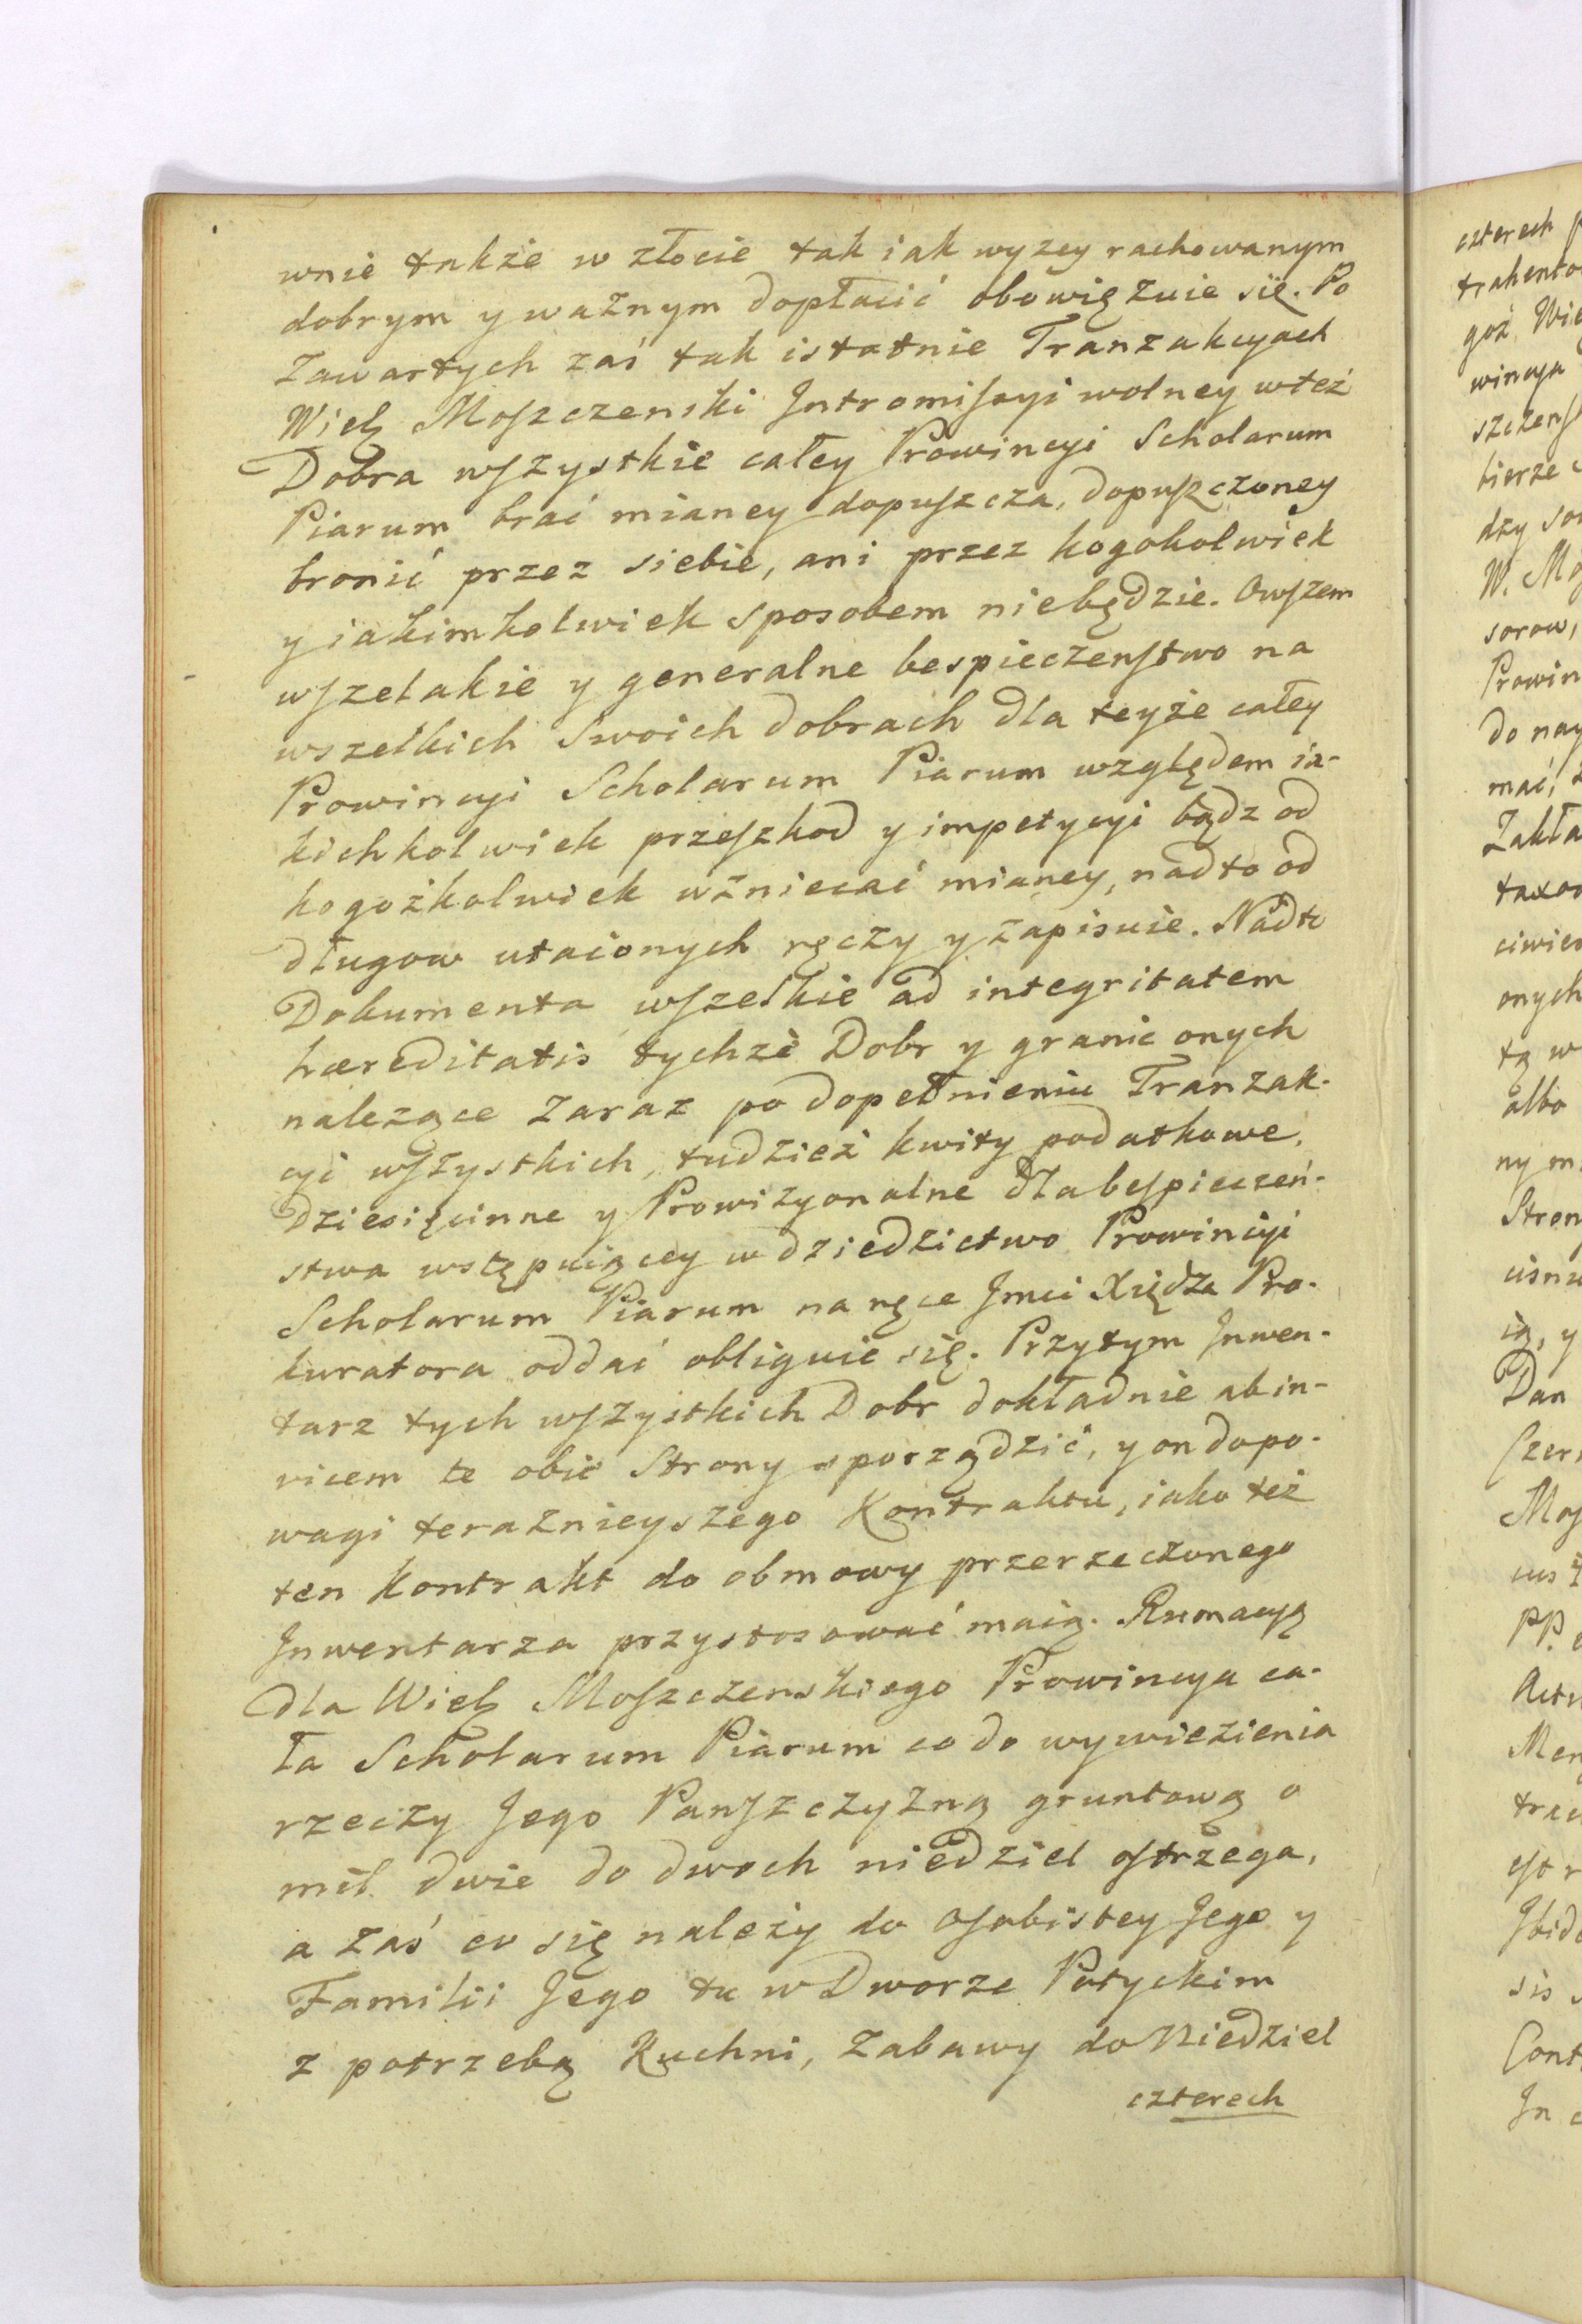 wnie także w złocie tak iak wyzey rachowanym
dobrym y ważnym dopłacić obowięzuie się. Po
Zawartych zaś tak istatnie Tranzakcyach
Wielͫ Moſzczenski Intromiſsyi wolney wteż
Dobra wſzystkie całey Prowincyi Scholarum
Piarum brać mianey dopuſzcza, dopuſzczoney
bronić przez siebie, ani przez kogokolwiek
y iakimkolwiek sposobem niebędzie. Owſzem
wſzelakie y generalne bespieczenſtwo na
wszelkich Swoich dobrach dla teyże całey
Prowincyi Scholarum Piarum względem ia-
kichkolwiek przeſzkod y impetycyi bądz od
kogożkolwiek wzniecać mianey, nadto od
długow utaionych ręczy y zapisuie. Nadto
Dokumenta wſzelkie ad integritatem
hæreditatis tychże Dobr y granic onych
nalezące Zaraz po dopełnieniu Tranzak-
cyi wſzystkich, tudzież kwity podatkowe,
Dziesięcinne y Prowizyonalne dla beſpieczeń-
stwa wstępuiącey w dziedzictwo Prowincyi
Scholarum Piarum na ręce Jmci Xiędza Pro-
kuratora oddać obliguie się. Przytym Inwen-
tarz tych wſzystkich Dobr dokładnie ab in-
vicem te obie Strony sporządzić, y on do po-
wagi teraznieyszego Kontraktu, iako też
ten Kontrakt do obmowy przerzeczonego
Inwentarza przystosować maią. Rumacyą
dla Wielͫ Moſzczenskiego Prowincya ca-
ła Scholarum Piarum co do wywiezienia
rzeczy Jego Panſzczyzną gruntową o
mil dwie do dwoch niedziel oſtrzega,
a zaś co się należy do Oſobistey Jego y
Familii Jego tu w Dworze Potyckim
z potrzebą Kuchni, Zabawy do Niedziel
czterech
czterech
trahento
goż Wie
wincya
szczenſ
bierze
dzy
W. Moſ
sorow,
Prowin
do nay
mać,
Zakła
taxo
ciwie
onych
tą w
albo
ny m
Stron
cisnu
ią, y
Dan
Czer
Moſ
PP.
Actu
Men
eſt
Ibid
sis
Cont
In